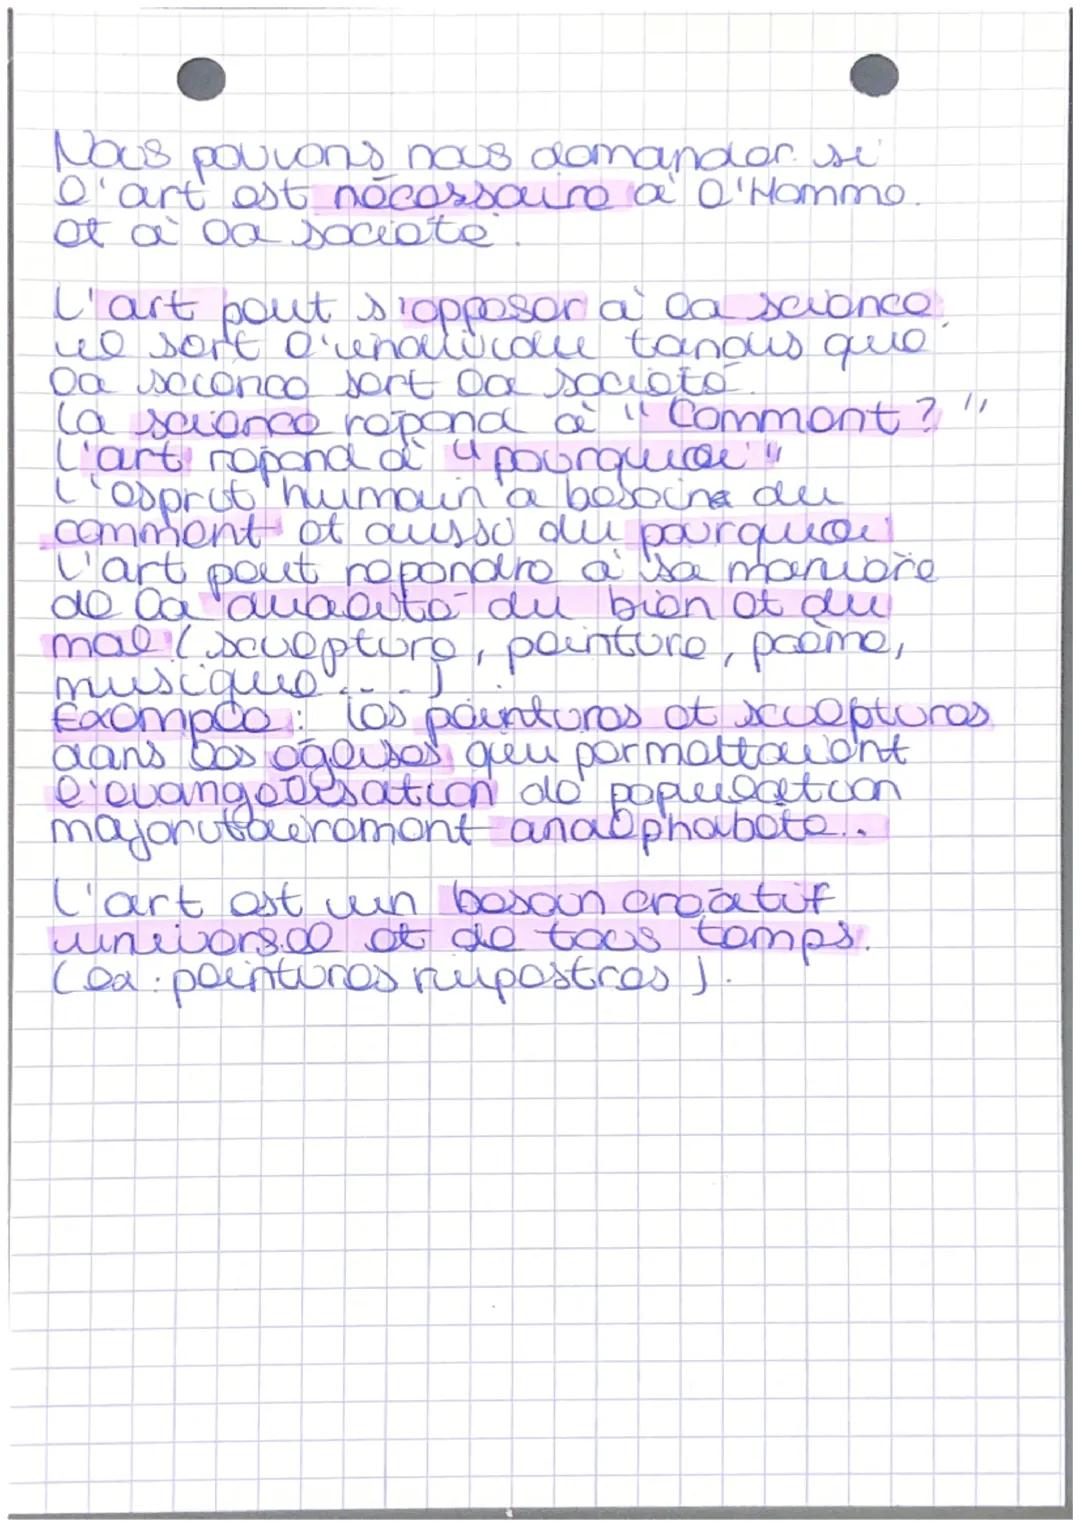 Nous pouvons nous demander si
l'art est nécessaire à l'Homme.
et à la société.
L'art peut s'opposer à la science
il sert l'individu tandis que
la seconde sert la société.
La science répond à "Comment ? "
L'art répond à "pourquoi"
L'esprit humain a besoin du
comment et aussi du pourquoi
L'art peut répondre à sa manière
de la dualité du bien et du
mal (sculpture, peinture, poème,
musique ...)
Exemple : les peintures et sculptures
dans les églises qui permettaient
l'évangélisation de population
majoritairement analphabète..
L'art est un besoin créatif
universel et de tous temps.
(ex : peintures rupestres).